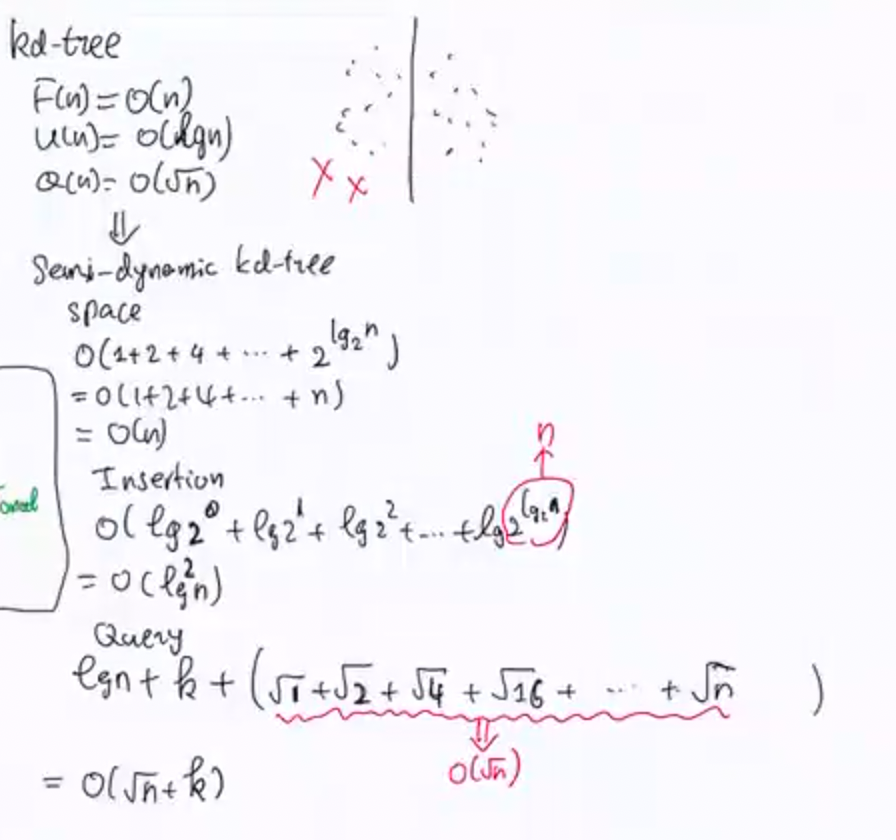 kd-tree
F(n) = O(n)
U(n) = O(lgn)
Q(n) = O(√n)
⇓
X X
Semi-dynamic kd-tree
space
O(1+2+4+ ⋯ + 2^{lg₂n})
= O(1+2+4+ ⋯ + n)
= O(n)
n
↑
Insertion
O(lg2⁰ + lg2¹ + lg2² + ⋯ + lg2^{lg₂n})
= O(lg²n)
Query
lgn + k + (√1 + √2 + √4 + √16 + ⋯ + √n)
⇓
O(√n)
= O(√n + k)